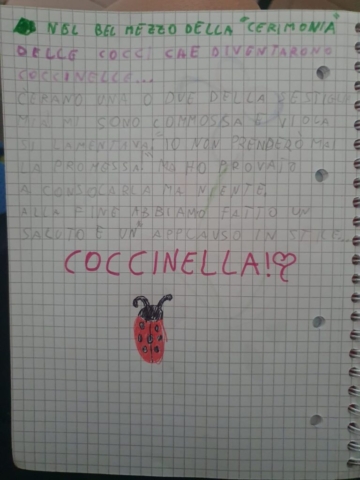 NEL BEL MEZZO DELLA "CERIMONIA"
DELLE COCCI CHE DIVENTARONO
COCCINELLE...
C'ERANO UNA O DUE DELLA SESTIGLIA
MIA MI SONO COMMOSSA E VIOLA
SI LAMENTAVA: "IO NON PRENDERÒ MAI
LA PROMESSA." MA HO PROVATO
A CONSOLARLA MA NIENTE.
ALLA FINE ABBIAMO FATTO UN
SALUTO E UN APPLAUSO IN STILE...
COCCINELLA!